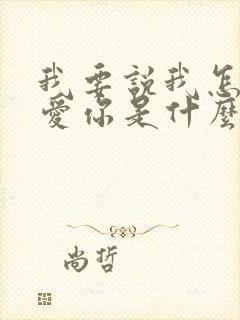 我要說我怎
愛你是什麼
尚哲